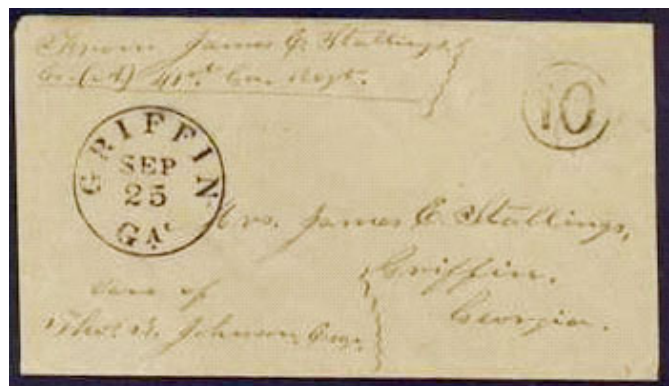 From James C. Stallings
Co. (A) 41st Geo. Regt.
10
GRIFFIN
SEP
25
GA.
Mrs. James C. Stallings,
Griffin,
Georgia.
Care of
Thos. Johnson Esqr.